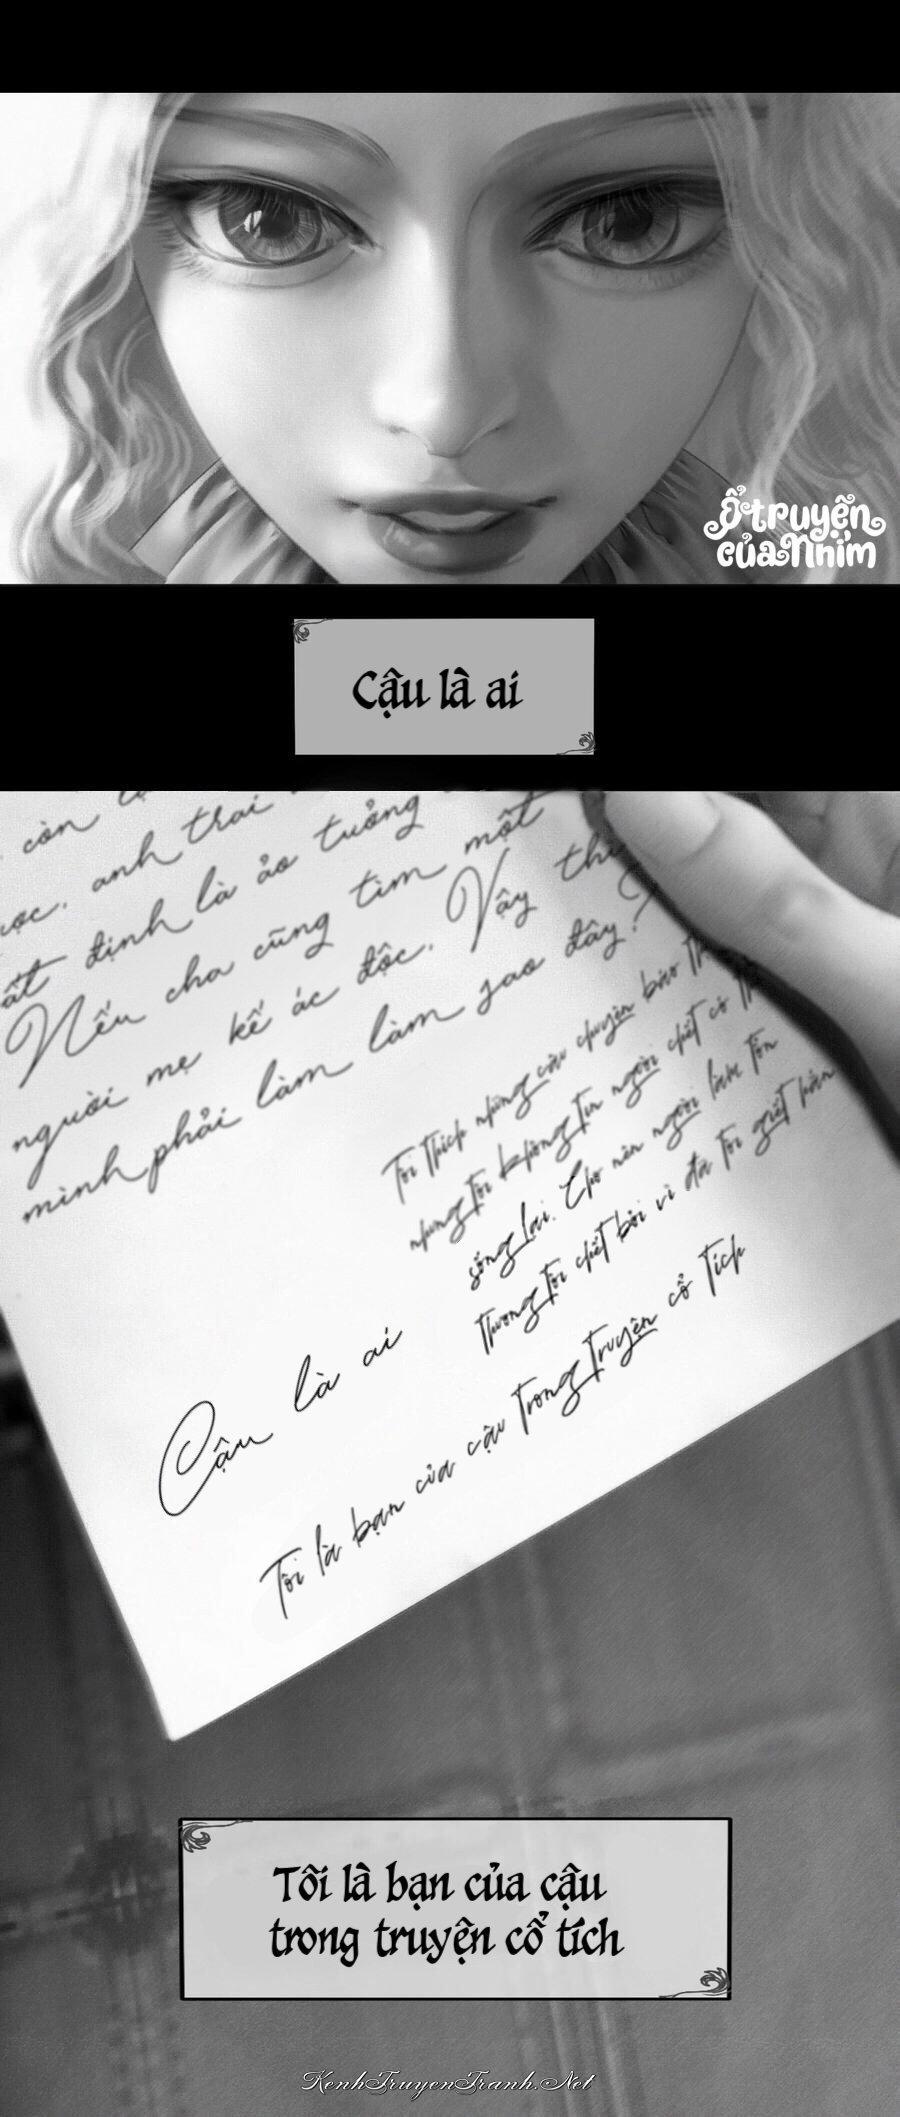 Ổ truyện
của Nhím
Cậu là ai
còn
ược, anh trai
ất định là ảo tưởng
Nếu cha cũng tìm một
người mẹ kế ác độc. Vậy thì
mình phải làm làm sao đây?
Tôi thích những câu chuyện báo th
nhưng tôi không tin người chết có th
sống lại. Cho nên người làm tổn
thương tôi chết bởi vì đã tôi giết hắn
Cậu là ai
Tôi là bạn của cậu trong truyện cổ tích
Tôi là bạn của cậu
trong truyện cổ tích
KenhTruyenTranh.Net